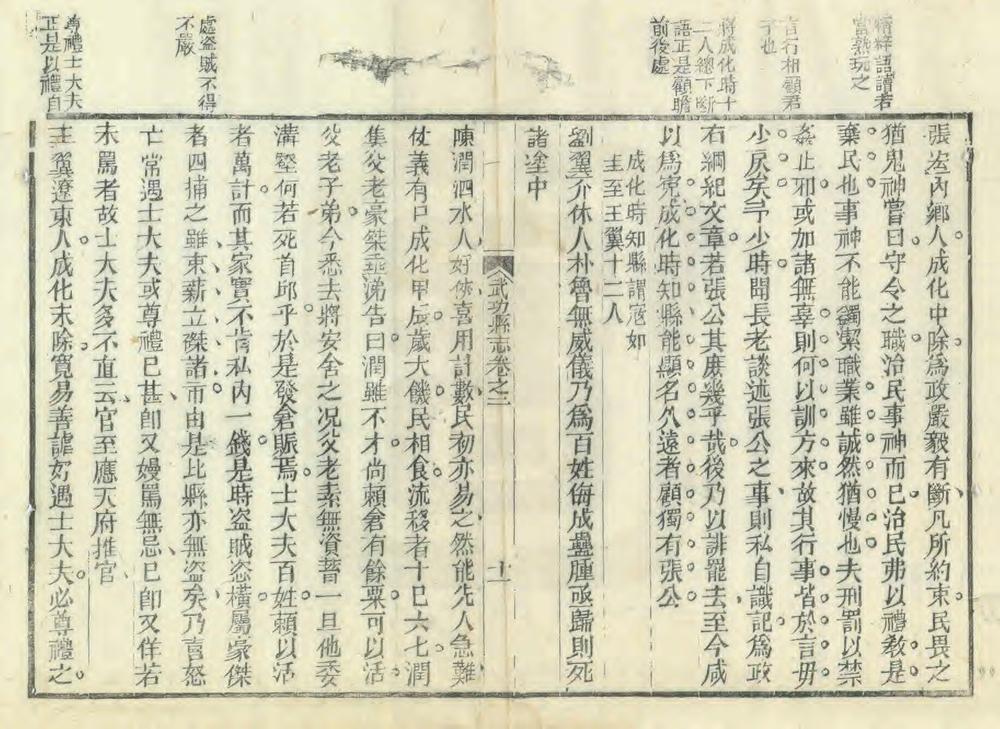 精粹語讀者
當熟玩之
言行相顧君
子也
將成化時十
二人總下斷
語正是顧瞻
前後處
處盜賊不得
不嚴
尊禮士大夫
正是以禮自
張宏內鄉人成化中除爲政嚴毅有斷凡所約束民畏之
猶鬼神嘗曰守令之職治民事神而已治民弗以禮教是
棄民也事神不能蠲潔職業雖誠然猶慢也夫刑罰以禁
姦止邪或加諸無辜則何以訓方來故其行事皆於言毋
少戾矣予少時聞長老談述張公之事則私自識記爲政
右綱紀文章若張公其庶幾乎哉後乃以誹罷去至今咸
以爲冤成化時知縣能顯名久遠者顧獨有張公
成化時知縣謂寇如
圭至王翼十二人
劉翼介休人朴魯無威儀乃爲百姓侮成蠱腫亟歸則死
諸塗中
武功縣志卷之二
十一
陳潤泗水人好俠喜用計數民初亦易之然能先人急難
仗義有戸成化甲辰歲大饑民相食流移者十巳六七潤
集父老豪桀垂涕告曰潤雖不才尚賴倉有餘粟可以活
父老子弟今悉去將安舍之况父老素無資蓄一旦他委
溝壑何若死首邱乎於是發倉賑焉士大夫百姓賴以活
者萬計而其家實不肯私內一錢是時盜賊恣橫屬豪傑
者四捕之雖束薪立磔諸市由是比縣亦無盜矣乃喜怒
亡常遇士大夫或尊禮巳甚卽又嫚罵無忌巳卽又佯若
未罵者故士大夫多不直云官至應天府推官
王翼遼東人成化末除寬易善謔好遇士大夫必尊禮之